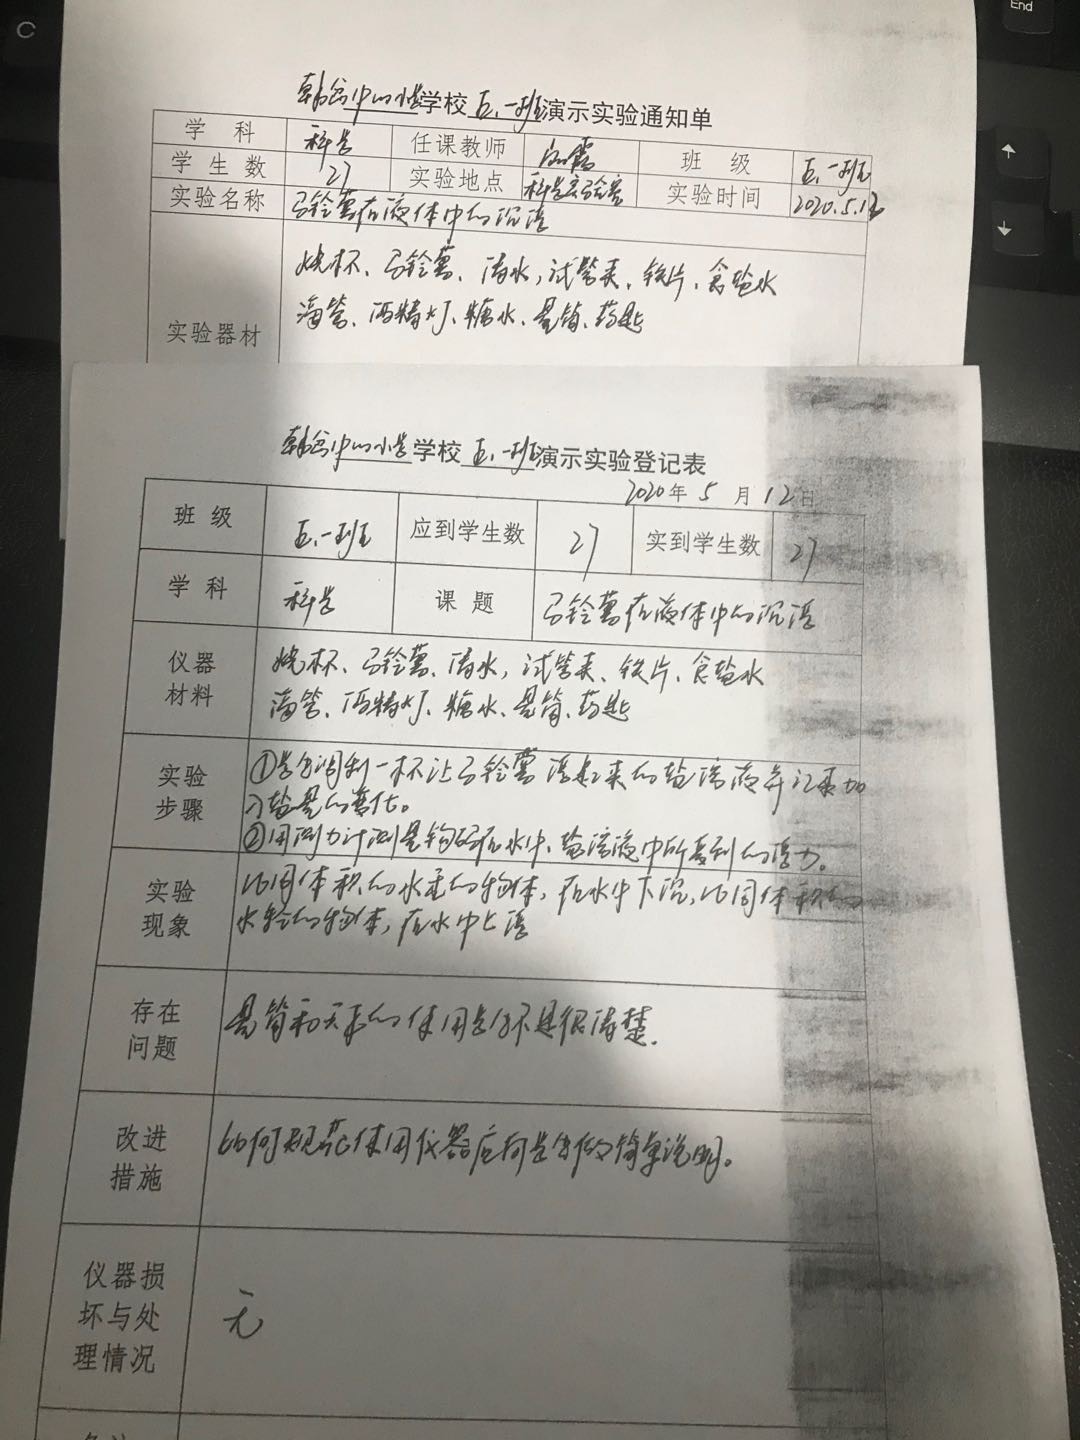 End
韩岔中心小学学校五.一班演示实验通知单
学 科 科学 任课教师 班 级 五.一班
学 生 数 27 实验地点 科学实验室 实验时间 2020.5.12
实验名称 马铃薯在液体中的沉浮
烧杯、马铃薯、清水,试管夹、铁片、食盐水
实验器材
滴管、酒精灯、糖水、量筒、药匙
韩岔中心小学学校五.一班演示实验登记表
2020年5月12日
班 级 五.一班 应到学生数 27 实到学生数 27
学 科 科学 课 题 马铃薯在液体中的沉浮
仪器 烧杯、马铃薯、清水,试管夹、铁片、食盐水
材料 滴管、酒精灯、糖水、量筒、药匙
实验 ①学生调制一杯让马铃薯浮起来的盐溶液并记录加
步骤 入盐量的变化。
②用测力计测量钩码在水中、盐溶液中所受到的浮力。
实验 比同体积的水重的物体,在水中下沉,比同体积的
现象 水轻的物体,在水中上浮
存在 量筒和天平的使用学生不是很清楚.
问题
改进 如何规范使用仪器应向学生做简单说明。
措施
仪器损
坏与处 无
理情况